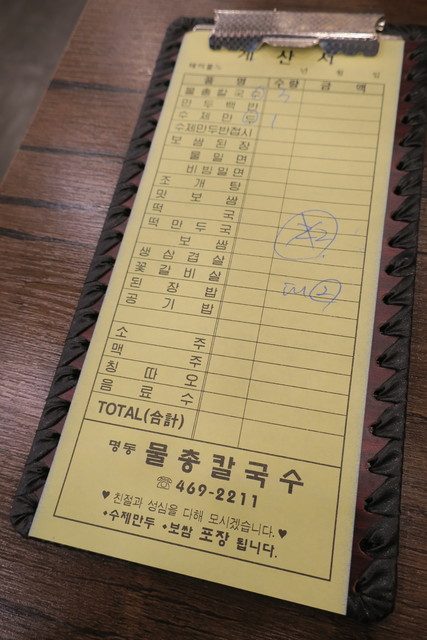 계 산 서
테이블№ 년 월 일
품 명 수량 금 액
물총칼국수 3
만두백반
수제만두 1
수제만두반접시
보쌈된장
물밀면
비빔밀면
조개탕
맛보쌈
떡국
떡만두국
보쌈
생삼겹살
꽃갈비살
된장밥
공기밥
소주
맥주
칭따오
음료수
TOTAL(合計)
명동 물총칼국수
☏ 469-2211
♥ 친절과 성심을 다해 모시겠습니다. ♥
•수제만두 •보쌈 포장 됩니다.